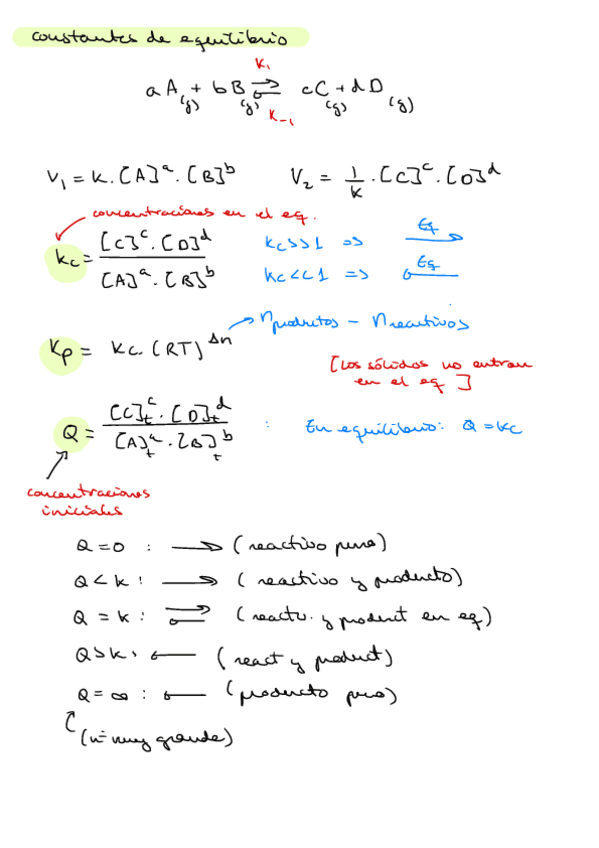 constantes de equilibrio
K₁
aA(g) + bB(g) ⇌ cC(g) + dD(g)
K₋₁
V₁ = K · [A]ᵃ · [B]ᵇ    V₂ = 1/K · [C]ᶜ · [D]ᵈ
concentraciones en el eq.
Kc = [C]ᶜ · [D]ᵈ / [A]ᵃ · [B]ᵇ
Kc>>1 => Eq →
Kc<<1 => Eq ←
Kp = Kc · (RT)^Δn → nproductos − nreactivos
[Los sólidos no entran
en el eq]
Q = [C]ₜᶜ · [D]ₜᵈ / [A]ₜᵃ · [B]ₜᵇ : En equilibrio: Q = Kc
concentraciones
iniciales
Q = 0 : → (reactivo puro)
Q < K : → (reactivo y producto)
Q = K : ⇌ (reactv. y product en eq)
Q > K : ← (react y product)
Q = ∞ : ← (producto puro)
(nº muy grande)